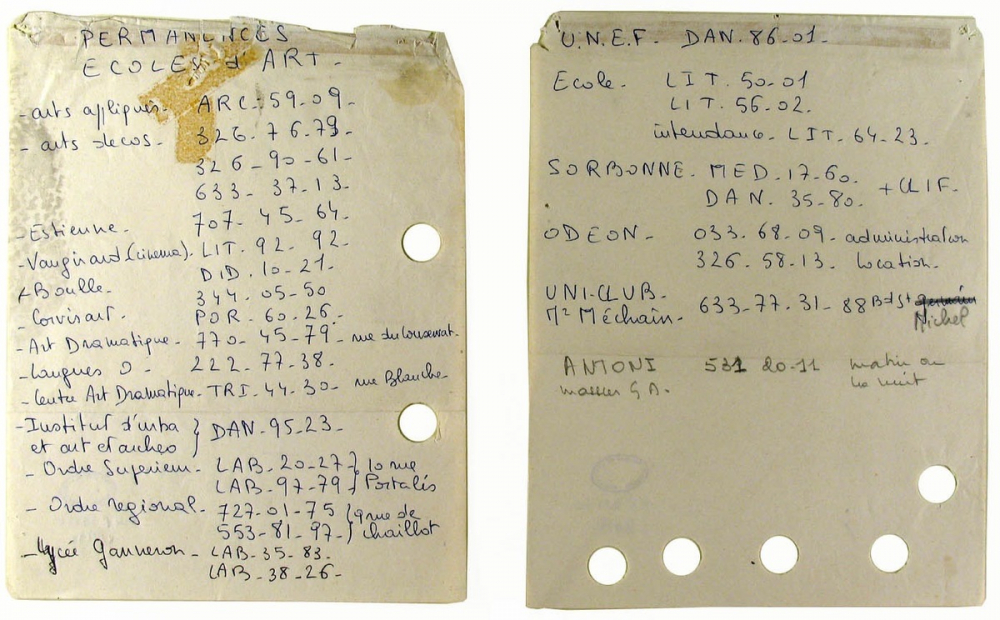 PERMANENCES
ECOLES d'ART -
- arts appliqués. ARC. 59.09 -
- arts decos. 326.76.79.
326 - 90 - 61 -
633 - 37.13 -
- Estienne. 707 - 45 - 64.
- Vaugirard (cinema). LIT. 92 - 92.
DID. 10 - 21.
Boulle. 344 - 05 - 50
- Corvisart. POR - 60 - 26 -
- Art Dramatique. 770 - 45 - 79. rue du Conservat.
- Langues O. 222. 77 - 38.
- Centre Art Dramatique. TRI. 44 - 30 - rue Blanche -
- Institut d'urba
et art et archéo } DAN - 95 - 23 -
- Ordre Superieur - LAB - 20 - 27 } 10 rue
LAB - 97 - 79 } Portalis
- Ordre regional. 727 - 01 - 75 } 9 rue de
553 - 81 - 97 } chaillot
- Lycée Ganneron - LAB - 35 - 83.
LAB - 38 - 26 -
U.N.E.F. DAN. 86 - 01 -
Ecole. LIT. 50 - 01
LIT. 56 - 02.
intendance. LIT. 64 - 23.
SORBONNE. MED. 17 - 60. + CLIF.
DAN. 35 - 80.
ODEON - 033. 68 - 09. administration
326. 58 - 13. location.
UNI-CLUB - 633 - 77 - 31 - 88 Bd St germain
Mr Méchain. Michel
ANTONI 531 20-11 matin ou
massier G A. la nuit